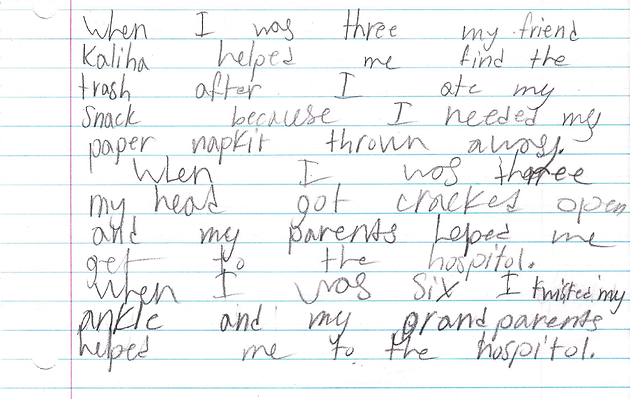 When I was three my friend
Kaliha helped me find the
trash after I ate my
snack because I needed my
paper napkit thrown away.
When I was three
my head got cracked open
and my parents heped me
get to the hospitol.
When I was six I twisted my
ankle and my grandparents
helped me to the hospitol.